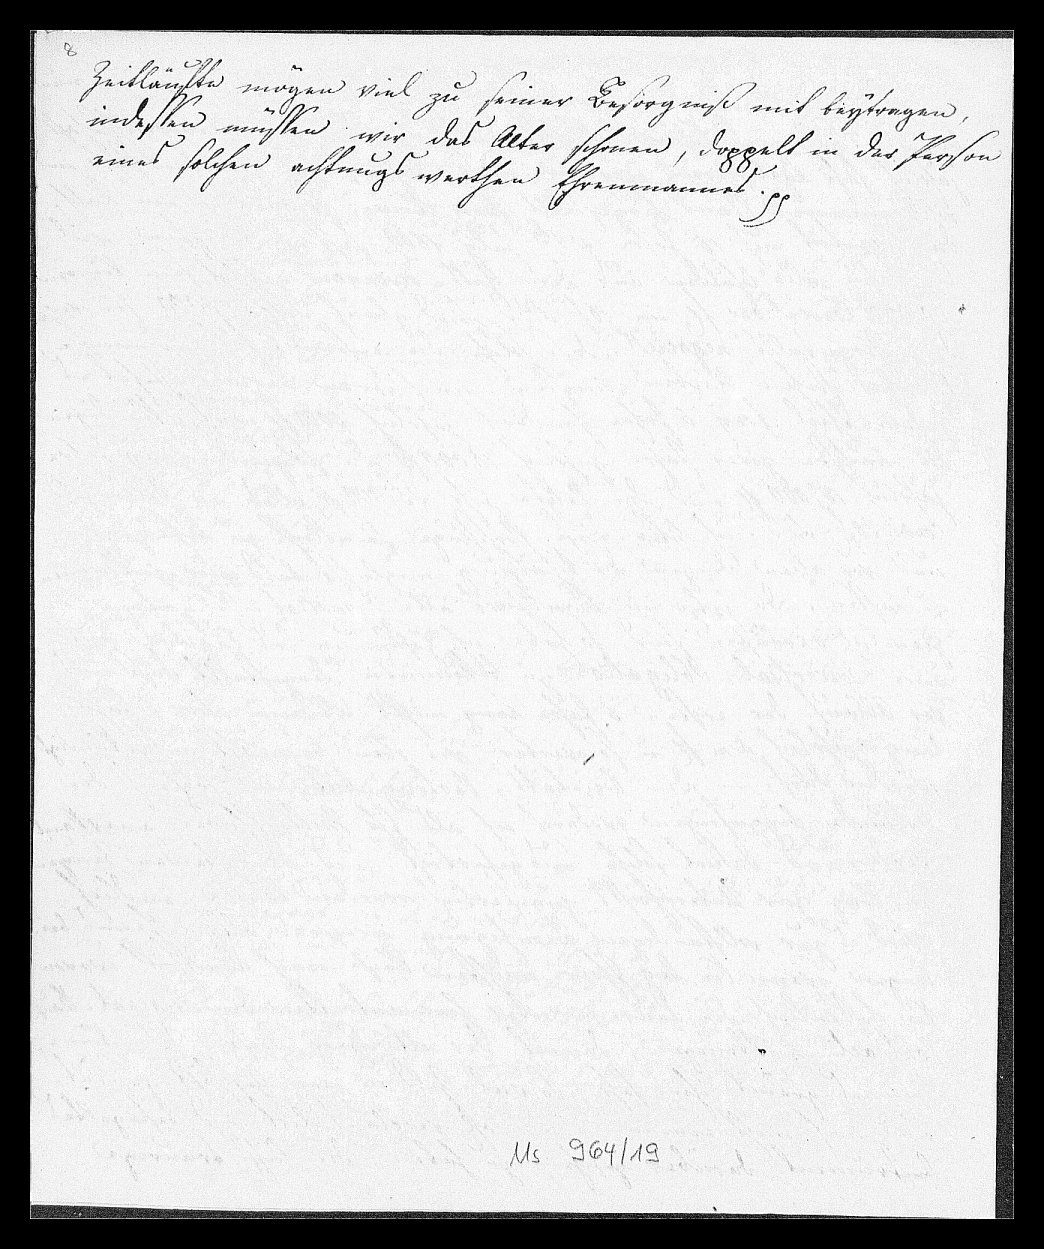 8
Zeitläufte mögen viel zu seiner Besorgniß mit beytragen,
indessen müssen wir das Alter schonen, doppelt in der Person
eines solchen achtungswerthen Ehrenmannes.
Ms 964/19